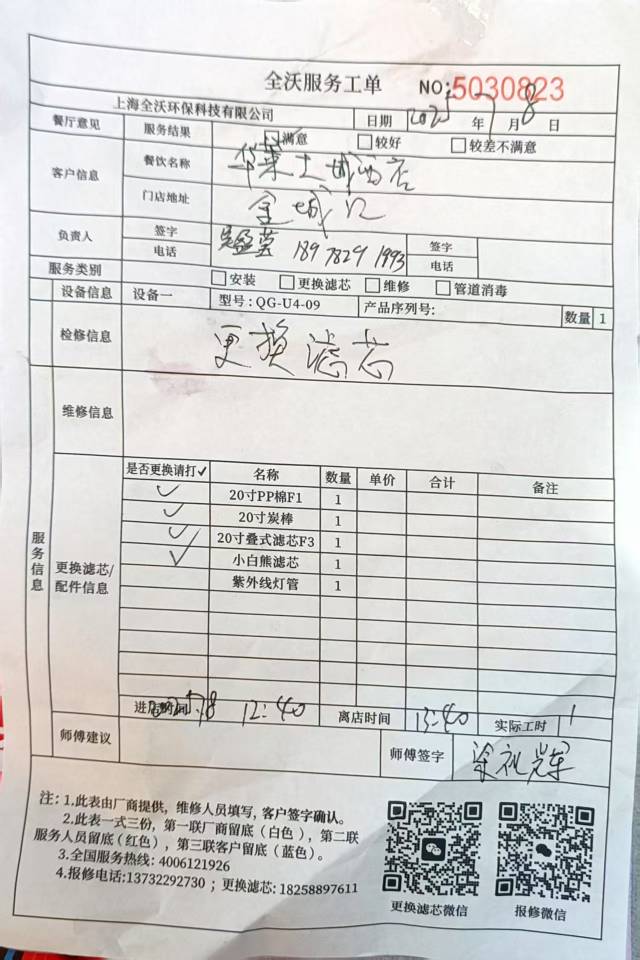 全沃服务工单 NO:5030823
上海全沃环保科技有限公司 日期 2025年7月8日
餐厅意见 服务结果 ☑满意 □较好 □较差不满意
客户信息 餐饮名称 华莱士城西店
门店地址 金城江
负责人 签字 签字
电话 189 7829 1993 电话
服务类别 □安装 □更换滤芯 □维修 □管道消毒
设备信息 设备一 型号:QG-U4-09 产品序列号: 数量 1
检修信息 更换滤芯
维修信息
服务信息
更换滤芯/配件信息
是否更换请打✓ 名称 数量 单价 合计 备注
✓ 20寸PP棉F1 1
✓ 20寸炭棒 1
✓ 20寸叠式滤芯F3 1
✓ 小白熊滤芯 1
紫外线灯管 1
进店时间 12:40 离店时间 13:40 实际工时 1
师傅建议 师傅签字
注:1.此表由厂商提供,维修人员填写,客户签字确认。
2.此表一式三份,第一联厂商留底(白色),第二联
服务人员留底(红色),第三联客户留底(蓝色)。
3.全国服务热线:4006121926
4.报修电话:13732292730;更换滤芯:18258897611
更换滤芯微信 报修微信